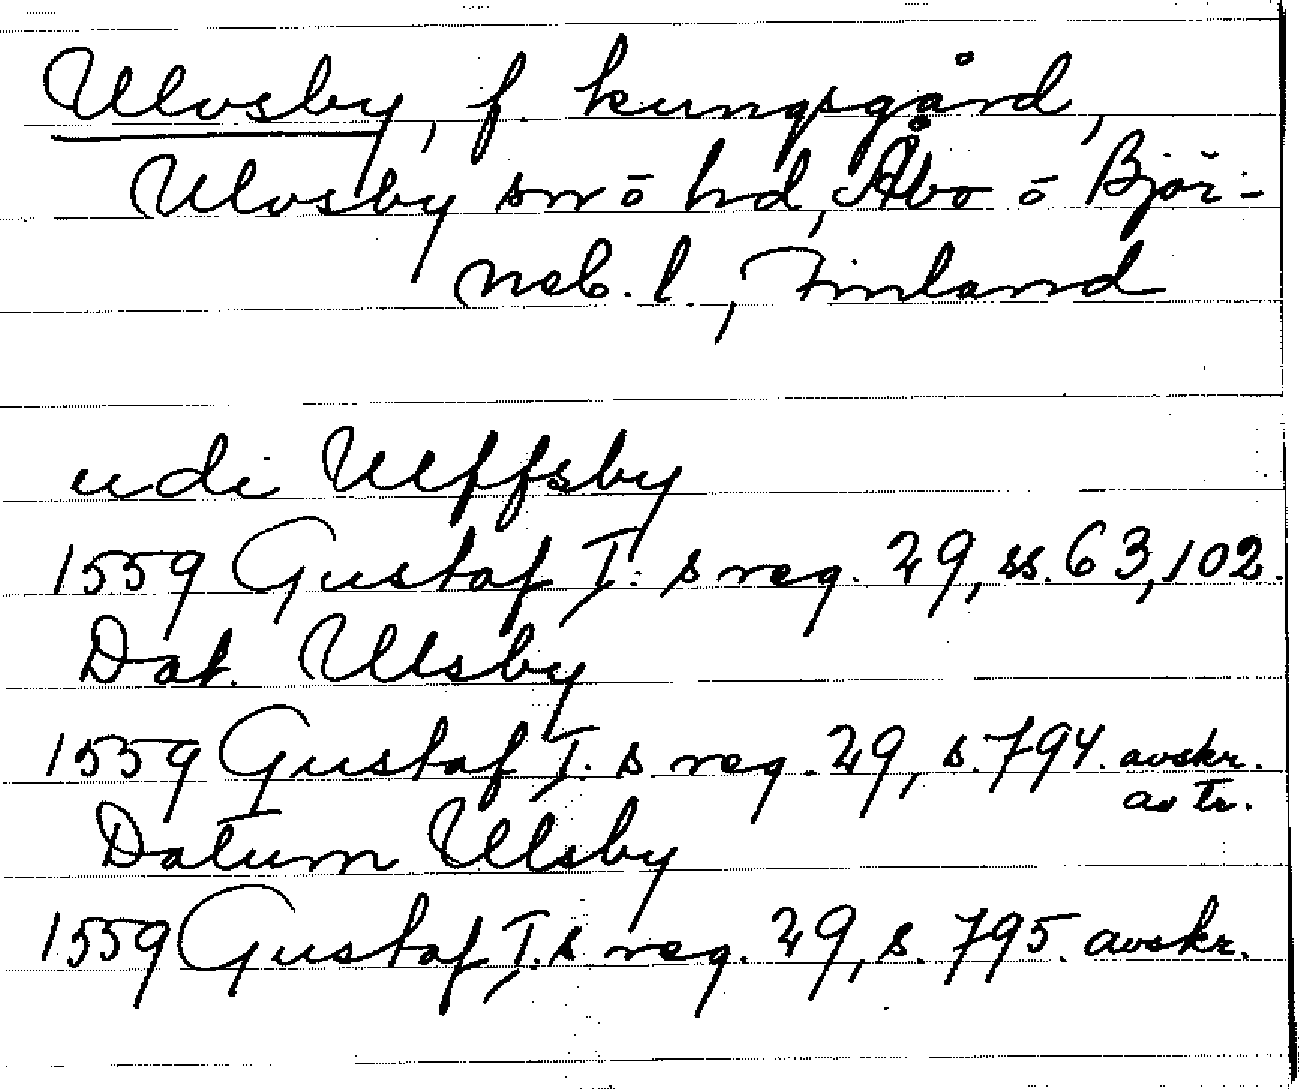 Ulvsby, f. kungsgård,
Ulvsby sn o hd, Åbo o Björ-
neb. l., Finland
udi Ulffsby
1559 Gustaf I:s reg. 29, ss. 63, 102.
Dat. Ulsby
1559 Gustaf I:s reg. 29, s. 794. avskr.
av tr.
Datum Ulsby
1559 Gustaf I:s reg. 29, s. 795. avskr.